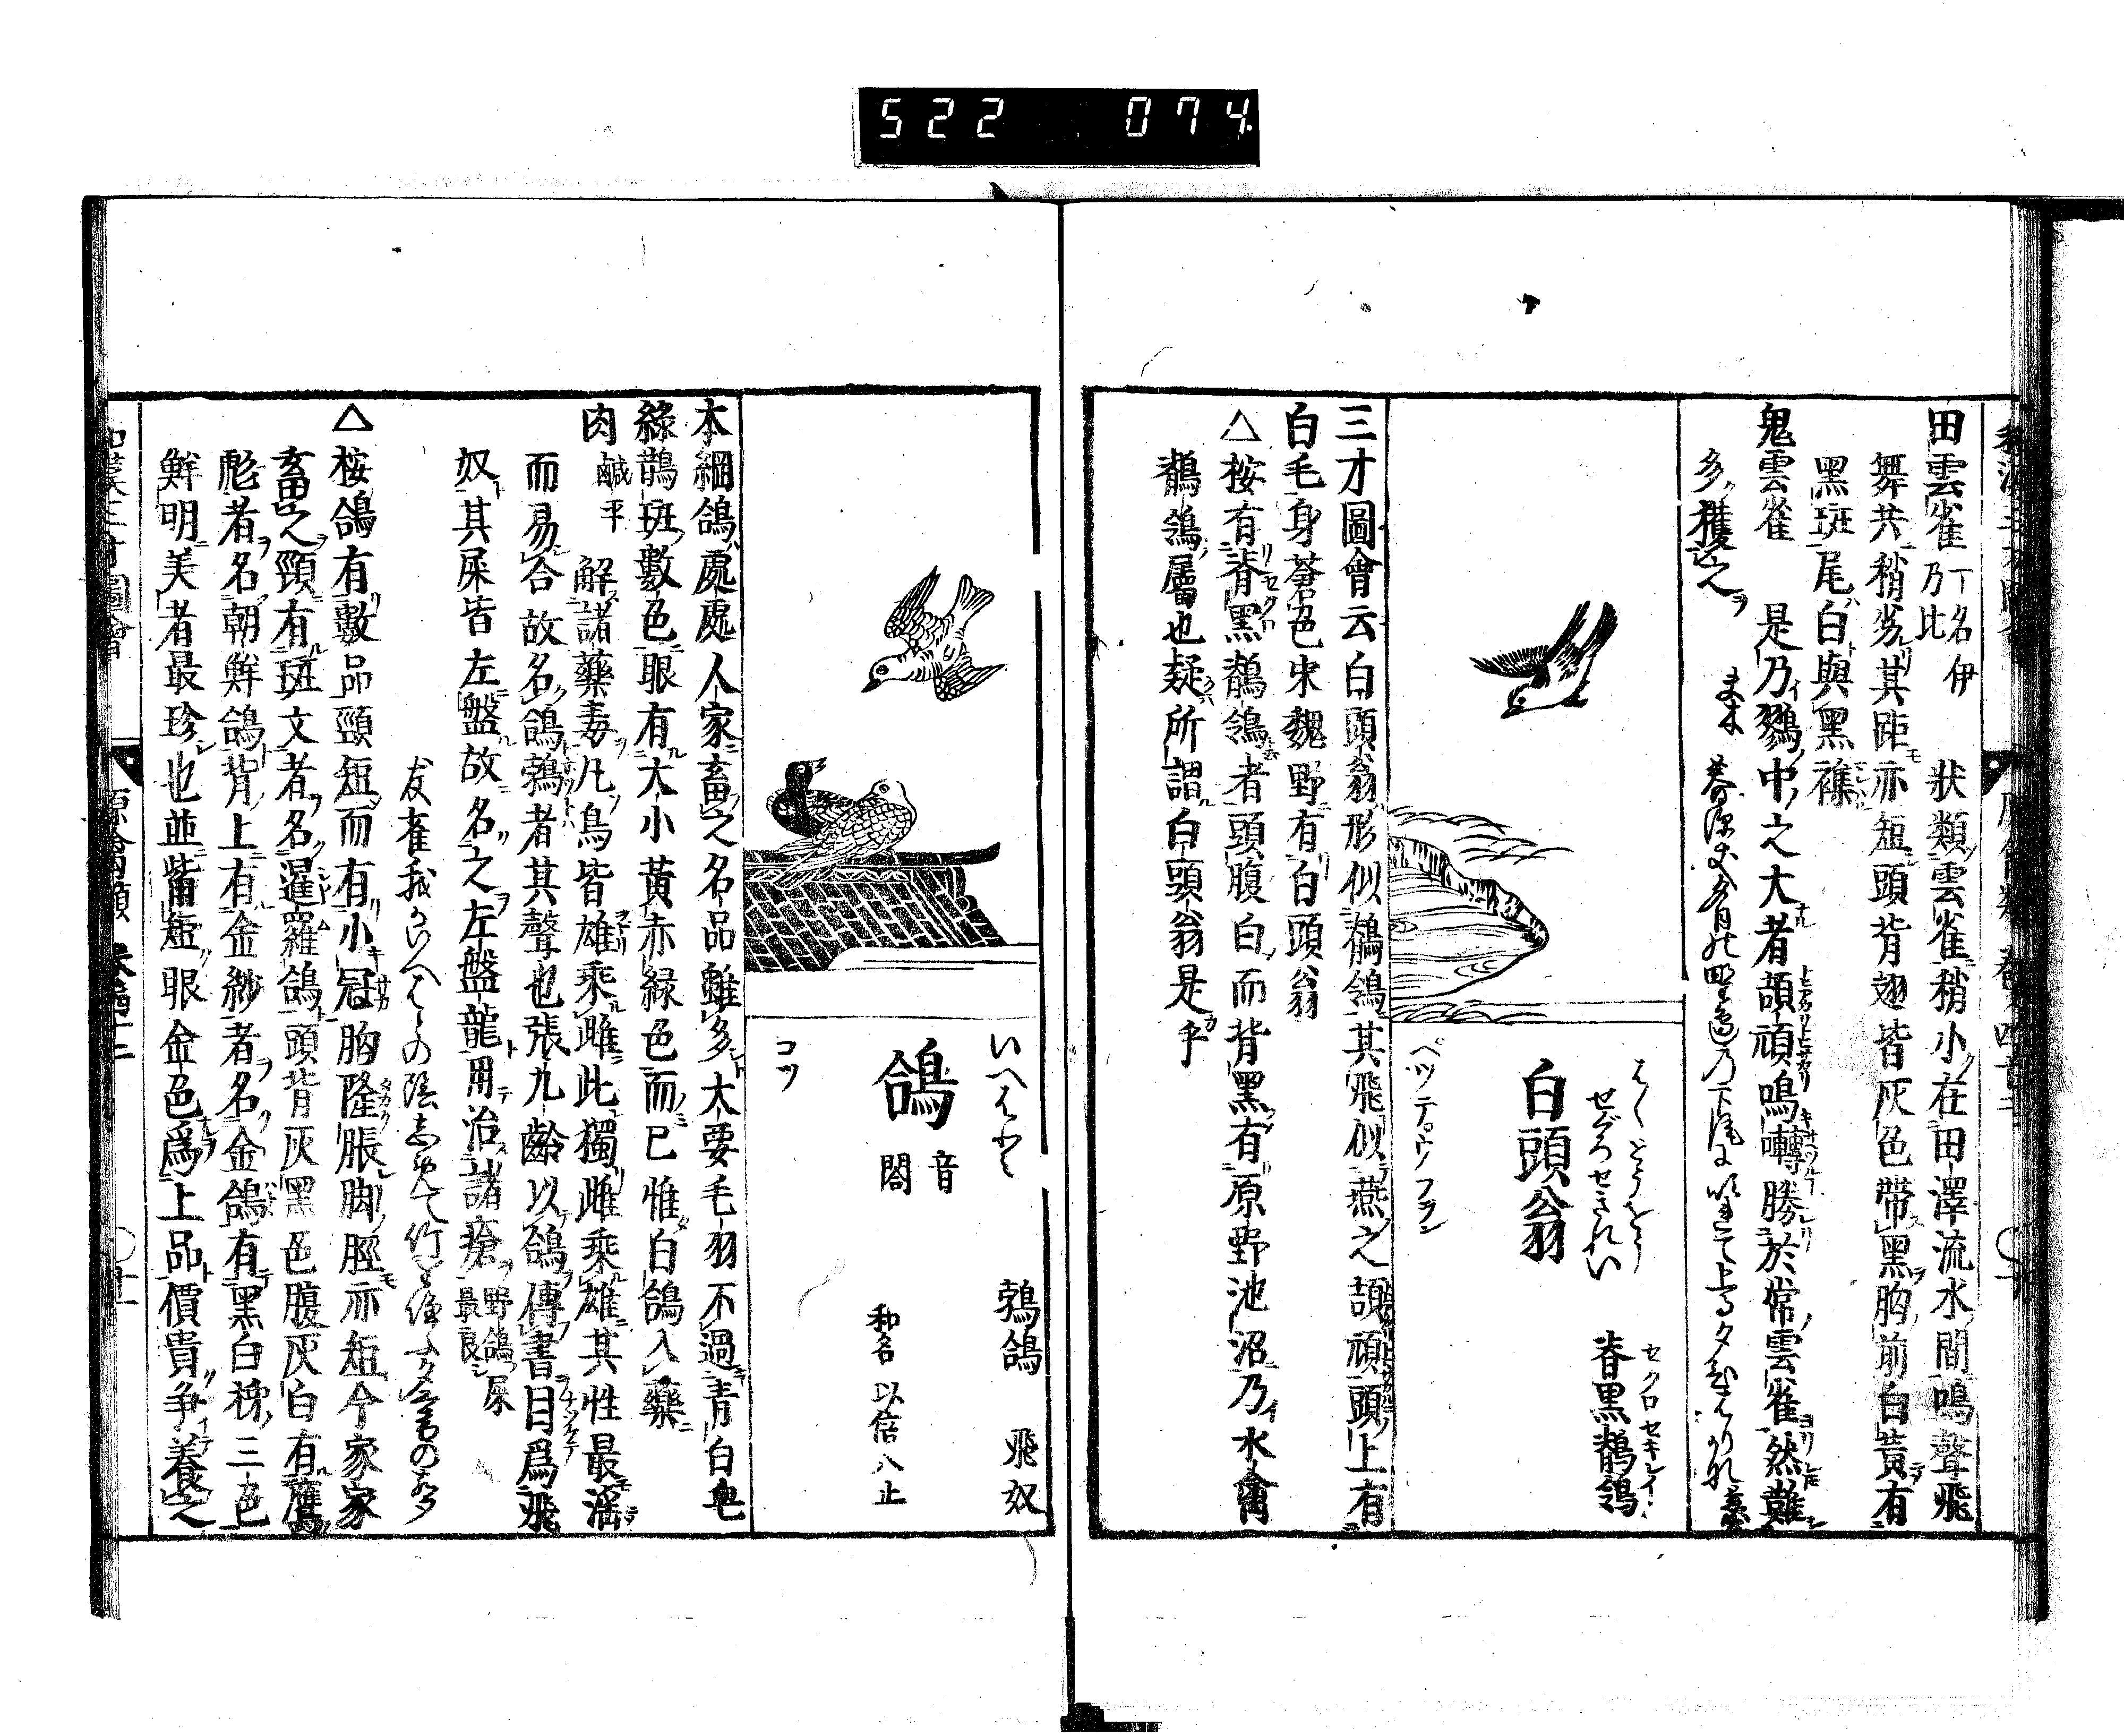 522 074
田雲雀 一名伊乃比 狀類雲雀稍小在田澤流水間鳴聲飛
舞共稍劣其距亦短頭背翅皆灰色帶黑胸前白黃有
黑斑尾白與黑襍
鬼雲雀 是乃鷚中之大者頡頏鳴囀勝於常雲雀然難
多獲之
白頭翁
はくとうをう
せぐろせきれい
ペツ テ゜ウ フヲン
脊黒鶺鴒
セクロセキレイ
三才圖會云白頭翁形似鶺鴒其飛似燕之頡頏頭上有
白毛身蒼色宋魏野有白頭翁
△按有脊黒鶺鴒者頭腹白而背黑有原野池沼乃水禽
鶺鴒屬也疑所謂白頭翁是乎
いへばと
鴿
音閤
コツ
鵓鴿 飛奴
和名以倍八止
本綱鴿處處人家畜之名品雖多大要毛羽不過青白皂
綠鵲斑數色眼有大小黃赤緑色而已惟白鴿入藥
肉 鹹平 解諸藥毒凡鳥皆雄乘雌此獨雌乘雄其性最淫
而易合故名鴿鵓者其聲也張九齡以鴿傳書目爲飛
奴其屎皆左盤故名之左盤龍用治諸瘡 野鴿屎最良
△按鴿有數品頸短而有小冠胸隆脹脚脛亦短今家家
畜之頸有斑文者名暹羅鴿頭背灰黑色腹灰白有鷹
彪者名朝鮮鴿背上有金紗者名金鴿有黑白柹三色
鮮明美者最珍也並觜短眼金色爲上品價貴爭養之